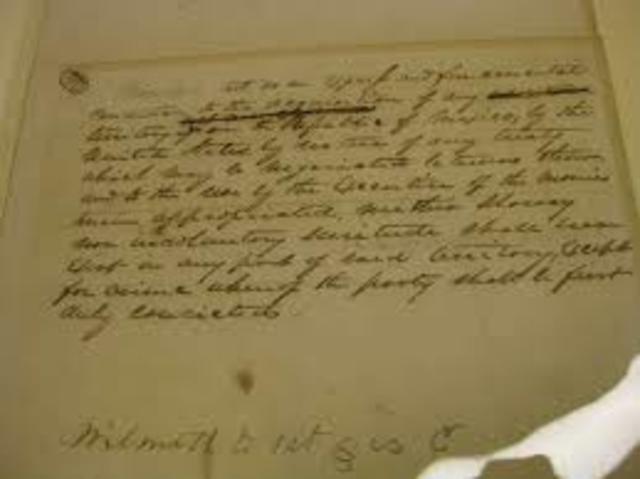 as an express and fundamental
condition to the acquisition of any
territory from the Republic of Mexico by the
United States, by virtue of any treaty
which may be negotiated between them,
and to the use by the Executive of the monies
herein appropriated, neither slavery
nor involuntary servitude shall ever
exist in any part of said territory, except
for crime whereof the party shall be first
duly convicted
to 1st §